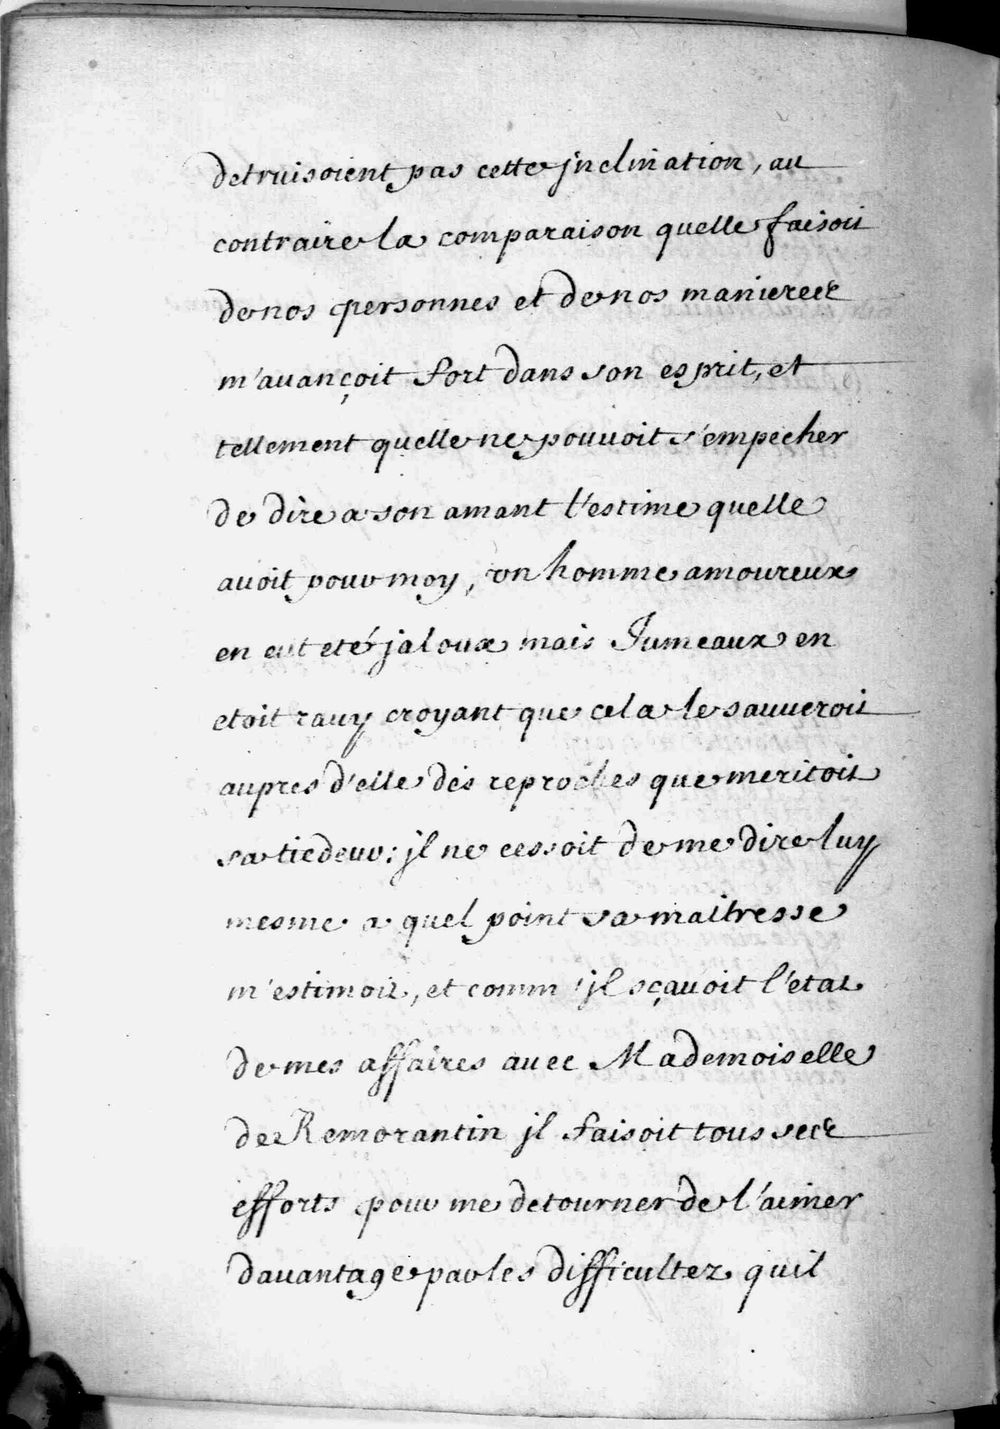 detruisoient pas cette jnclination, au
contraire la comparaison quelle faisoit
de nos personnes et de nos manieres
m'auançoit fort dans son esprit, et
tellement quelle ne pouuoit s'empecher
de dire a son amant l'estime quelle
auoit pour moy, vn homme amoureux
en eut eté jaloux mais Jumeaux en
etoit rauy croyant que cela le sauueroit
aupres d'elle des reproches que meritoit
sa tiedeur; jl ne cessoit de me dire luy
mesme a quel point sa maitresse
m'estimoit, et comm' jl sçauoit l'état
de mes affaires auec Mademoiselle
de Remorantin jl faisoit tous ses
efforts pour me detourner de l'aimer
dauantage par les difficultez quil